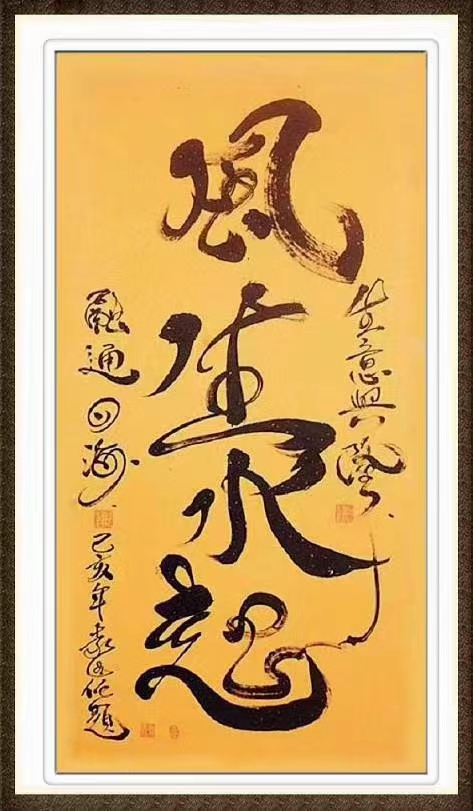 生意興隆
風生水起
融通四海
己亥年 題